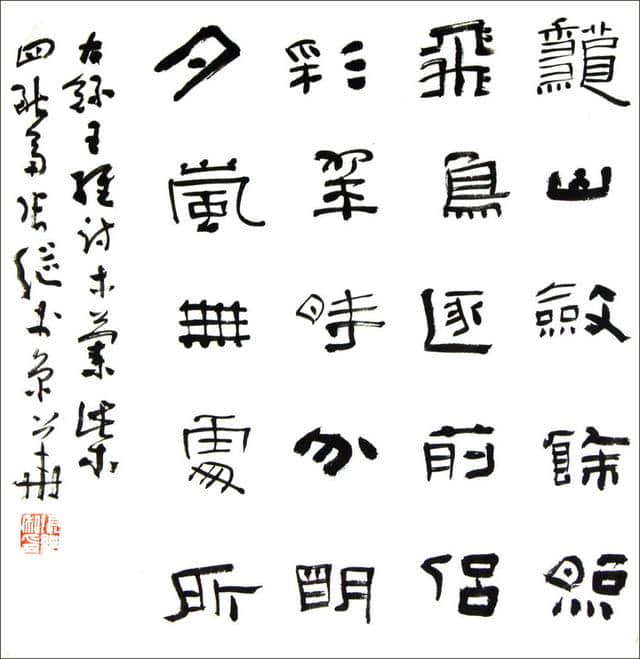 龝山斂餘照
飛鳥逐前侶
彩翠時分明
夕嵐無處所
右録王維詩木蘭柴
四耻斋張継書京